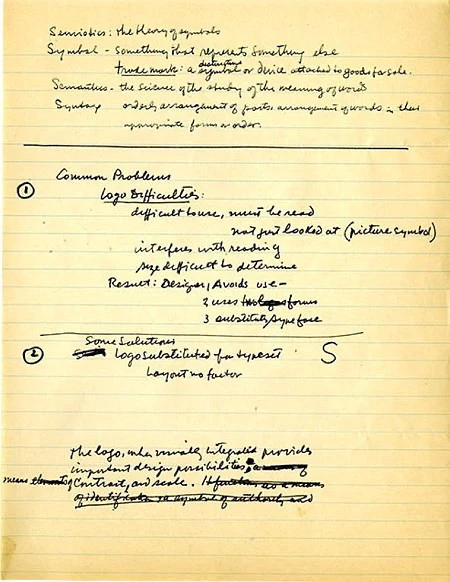 Semiotics: the theory of symbols
Symbol - something that represents something else
distinctive
trademark: a symbol or device attached to goods for sale.
Semantics - the science of the study of the meaning of words
Syntax orderly arrangement of parts, arrangement of words in their
appropriate forms or order.
1 Common Problems
Logo Difficulties:
difficult to use, must be read
not just looked at (picture symbol)
interferes with reading
size difficult to determine
Result: Designer, Avoids use -
2 uses forms
3 substitutes typeface
Some Solutions
2 Logo substituted for typeset S
Layout no factor
The logo, when visually integrated provides
important design possibilities;
means of contrast, and scale. It functions as a means
of identification as a symbol of authority and